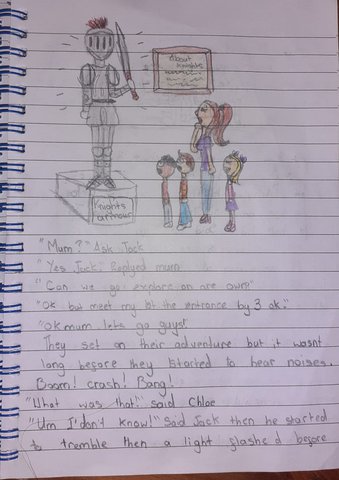 About
Knights
Knights
armour
"Mum?" Ask Jack
"Yes Jack. Replyed mum
"Can we go explore on are own?"
"OK but meet my at the entrance by 3 ok."
"ok mum lets go guys!
They set on their adventure but it wasnt
long before they started to hear noises.
Boom! crash! Bang!
"What was that!" said Chloe
"Um I don't know!" Said Jack then he started
to tremble then a light flashed before